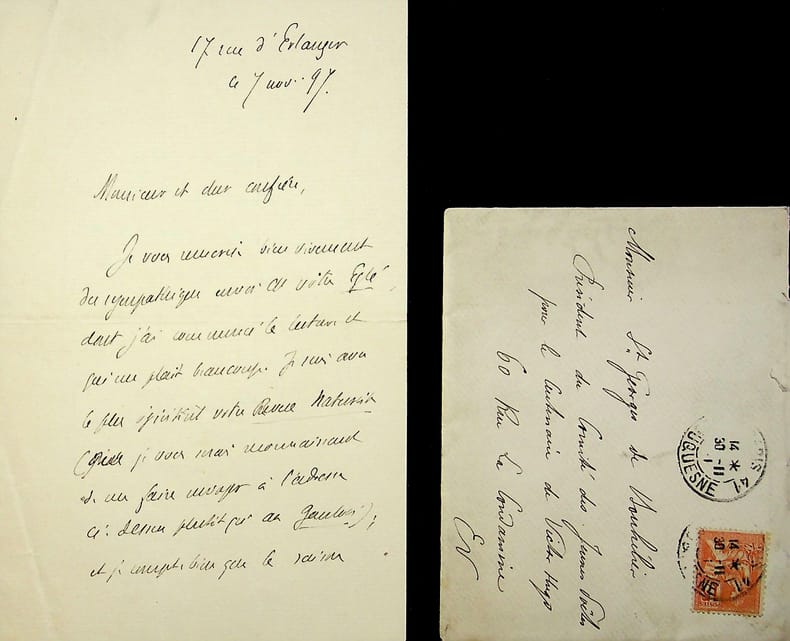 17 rue d'Erlanger
ce 7 nov. 97.
Monsieur et cher confrère,
Je vous remercie bien vivement
du sympathique envoi de votre Eglé,
dont j'ai commencé la lecture et
qui me plait beaucoup. Je suis avec
le plus votre Revue Naturiste
(que je vous serais reconnaissant
de me faire envoyer à l'adresse
ci-dessus plutôt qu'au Gaulois);
et je compte bien que la saison
Monsieur St. Georges de Bouhélier
Président du Comité des Jeunes Poètes
pour le Centenaire de Victor Hugo
60 Rue La Condamine
EV
PARIS 41
14 * 30 -11
DUQUESNE
14 * 30 -11